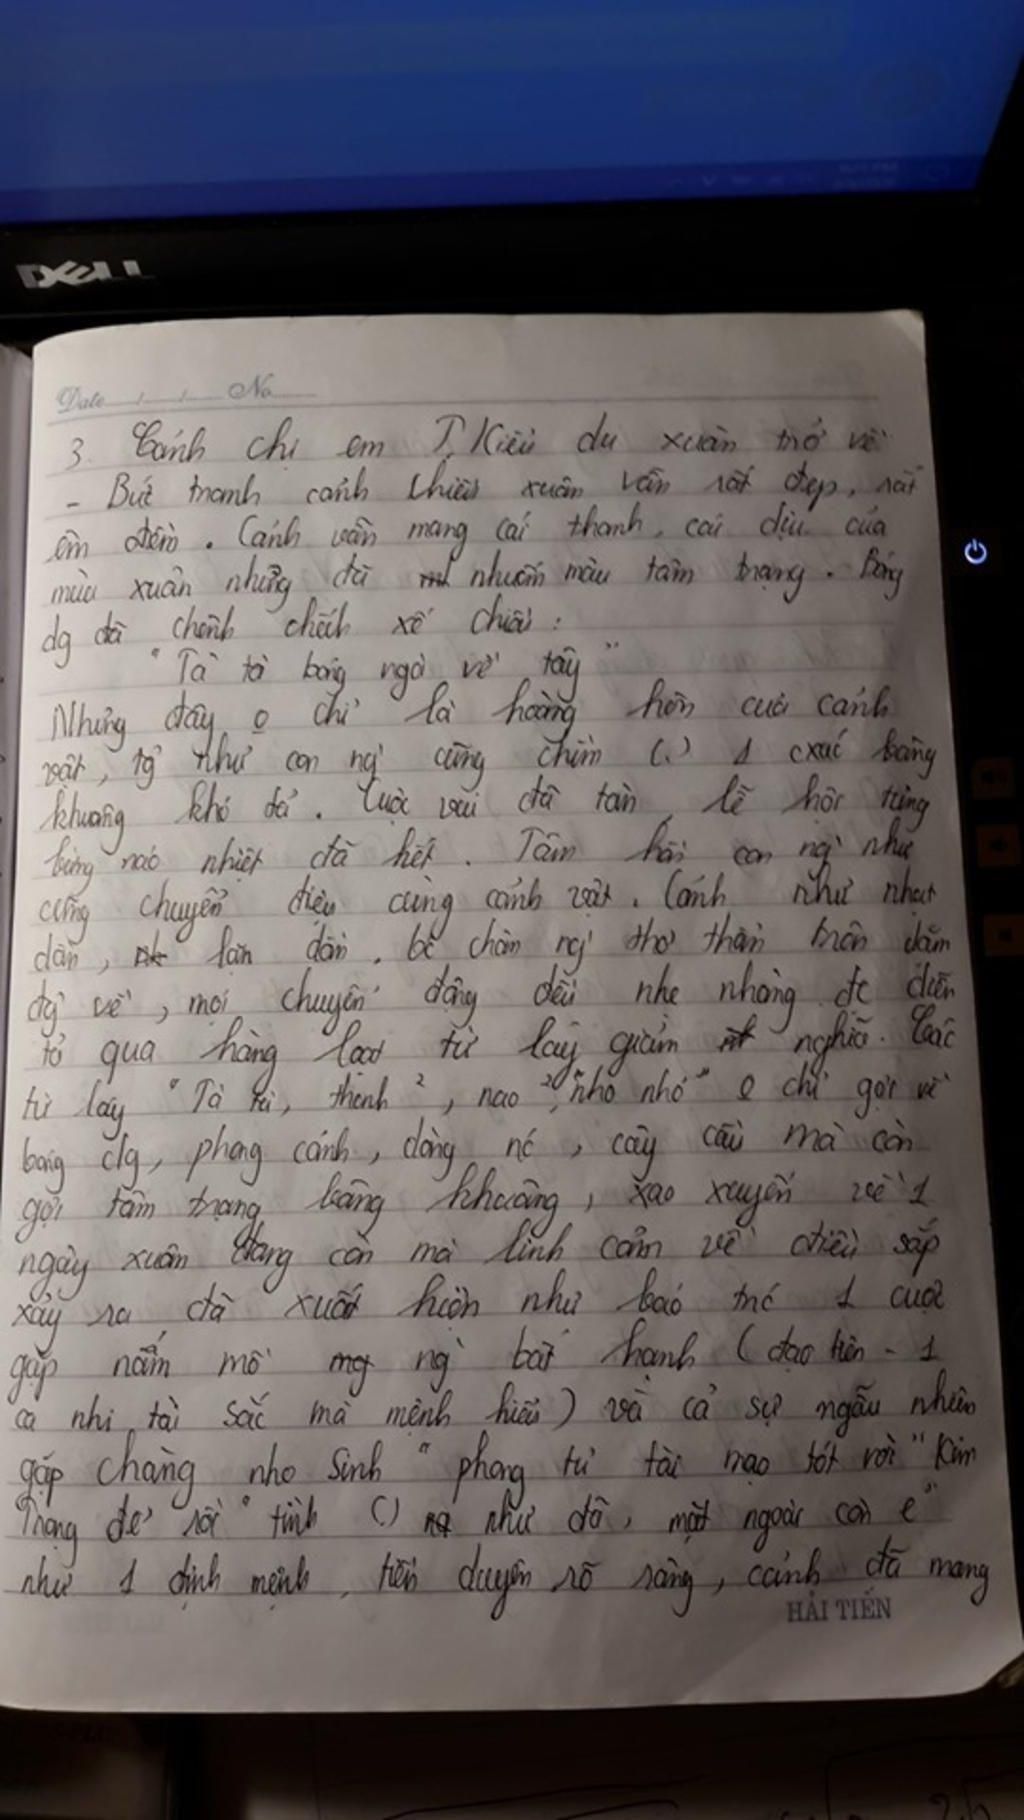 DELL
Date / / No
3. Cảnh chị em T. Kiều du xuân trở về
- Bức tranh cảnh chiều xuân vẫn rất đẹp, rất
êm đềm. Cảnh vẫn mang cái thanh, cái dịu của
mùa xuân nhưng đã nhuốm màu tâm trạng. Bóng
dg đã chênh chếch xế chiều:
"Tà tà bóng ngả về tây"
Nhưng đây o chỉ là hoàng hôn của cảnh
vật, tg như con ng' cũng chìm (.) 1 cxúc bâng
khuâng khó tả. Cuộc vui đã tàn, lễ hội tưng
bừng náo nhiệt đã hết. Tâm hồn con ng' như
cũng chuyển điệu cùng cảnh vật. Cảnh như nhạt
dần, lặn dần. bc chân ng' thơ thẩn trên dặm
đg về, mọi chuyển động đều nhẹ nhàng đc diễn
tả qua hàng loạt từ láy giảm nghĩa. Các
từ láy "Tà tà, thanh ², nao ², nho nhỏ" o chỉ gợi về
bóng dg, phong cảnh, dòng nc, cây cầu mà còn
gợi tâm trạng bâng khuâng, xao xuyến về 1
ngày xuân đang còn mà linh cảm về điều sắp
xảy ra đã xuất hiện như báo trc 1 cuộc
gặp nấm mồ ng` bất hạnh (đạm tiên - 1
ca nhi tài sắc mà mệnh hiểu) và cả sự ngẫu nhiên
gặp chàng nho sinh "phong tư tài mạo tót vời" Kim
Trọng để rồi "tình (.) như đã, mặt ngoài còn e"
như 1 định mệnh, tiền duyên rõ ràng, cảnh đã mang
HẢI TIẾN